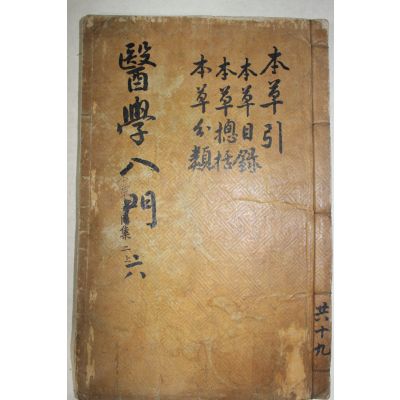 本草引
本草目錄
本草摠括
本草分類
醫學入門
六
集二上
共十九